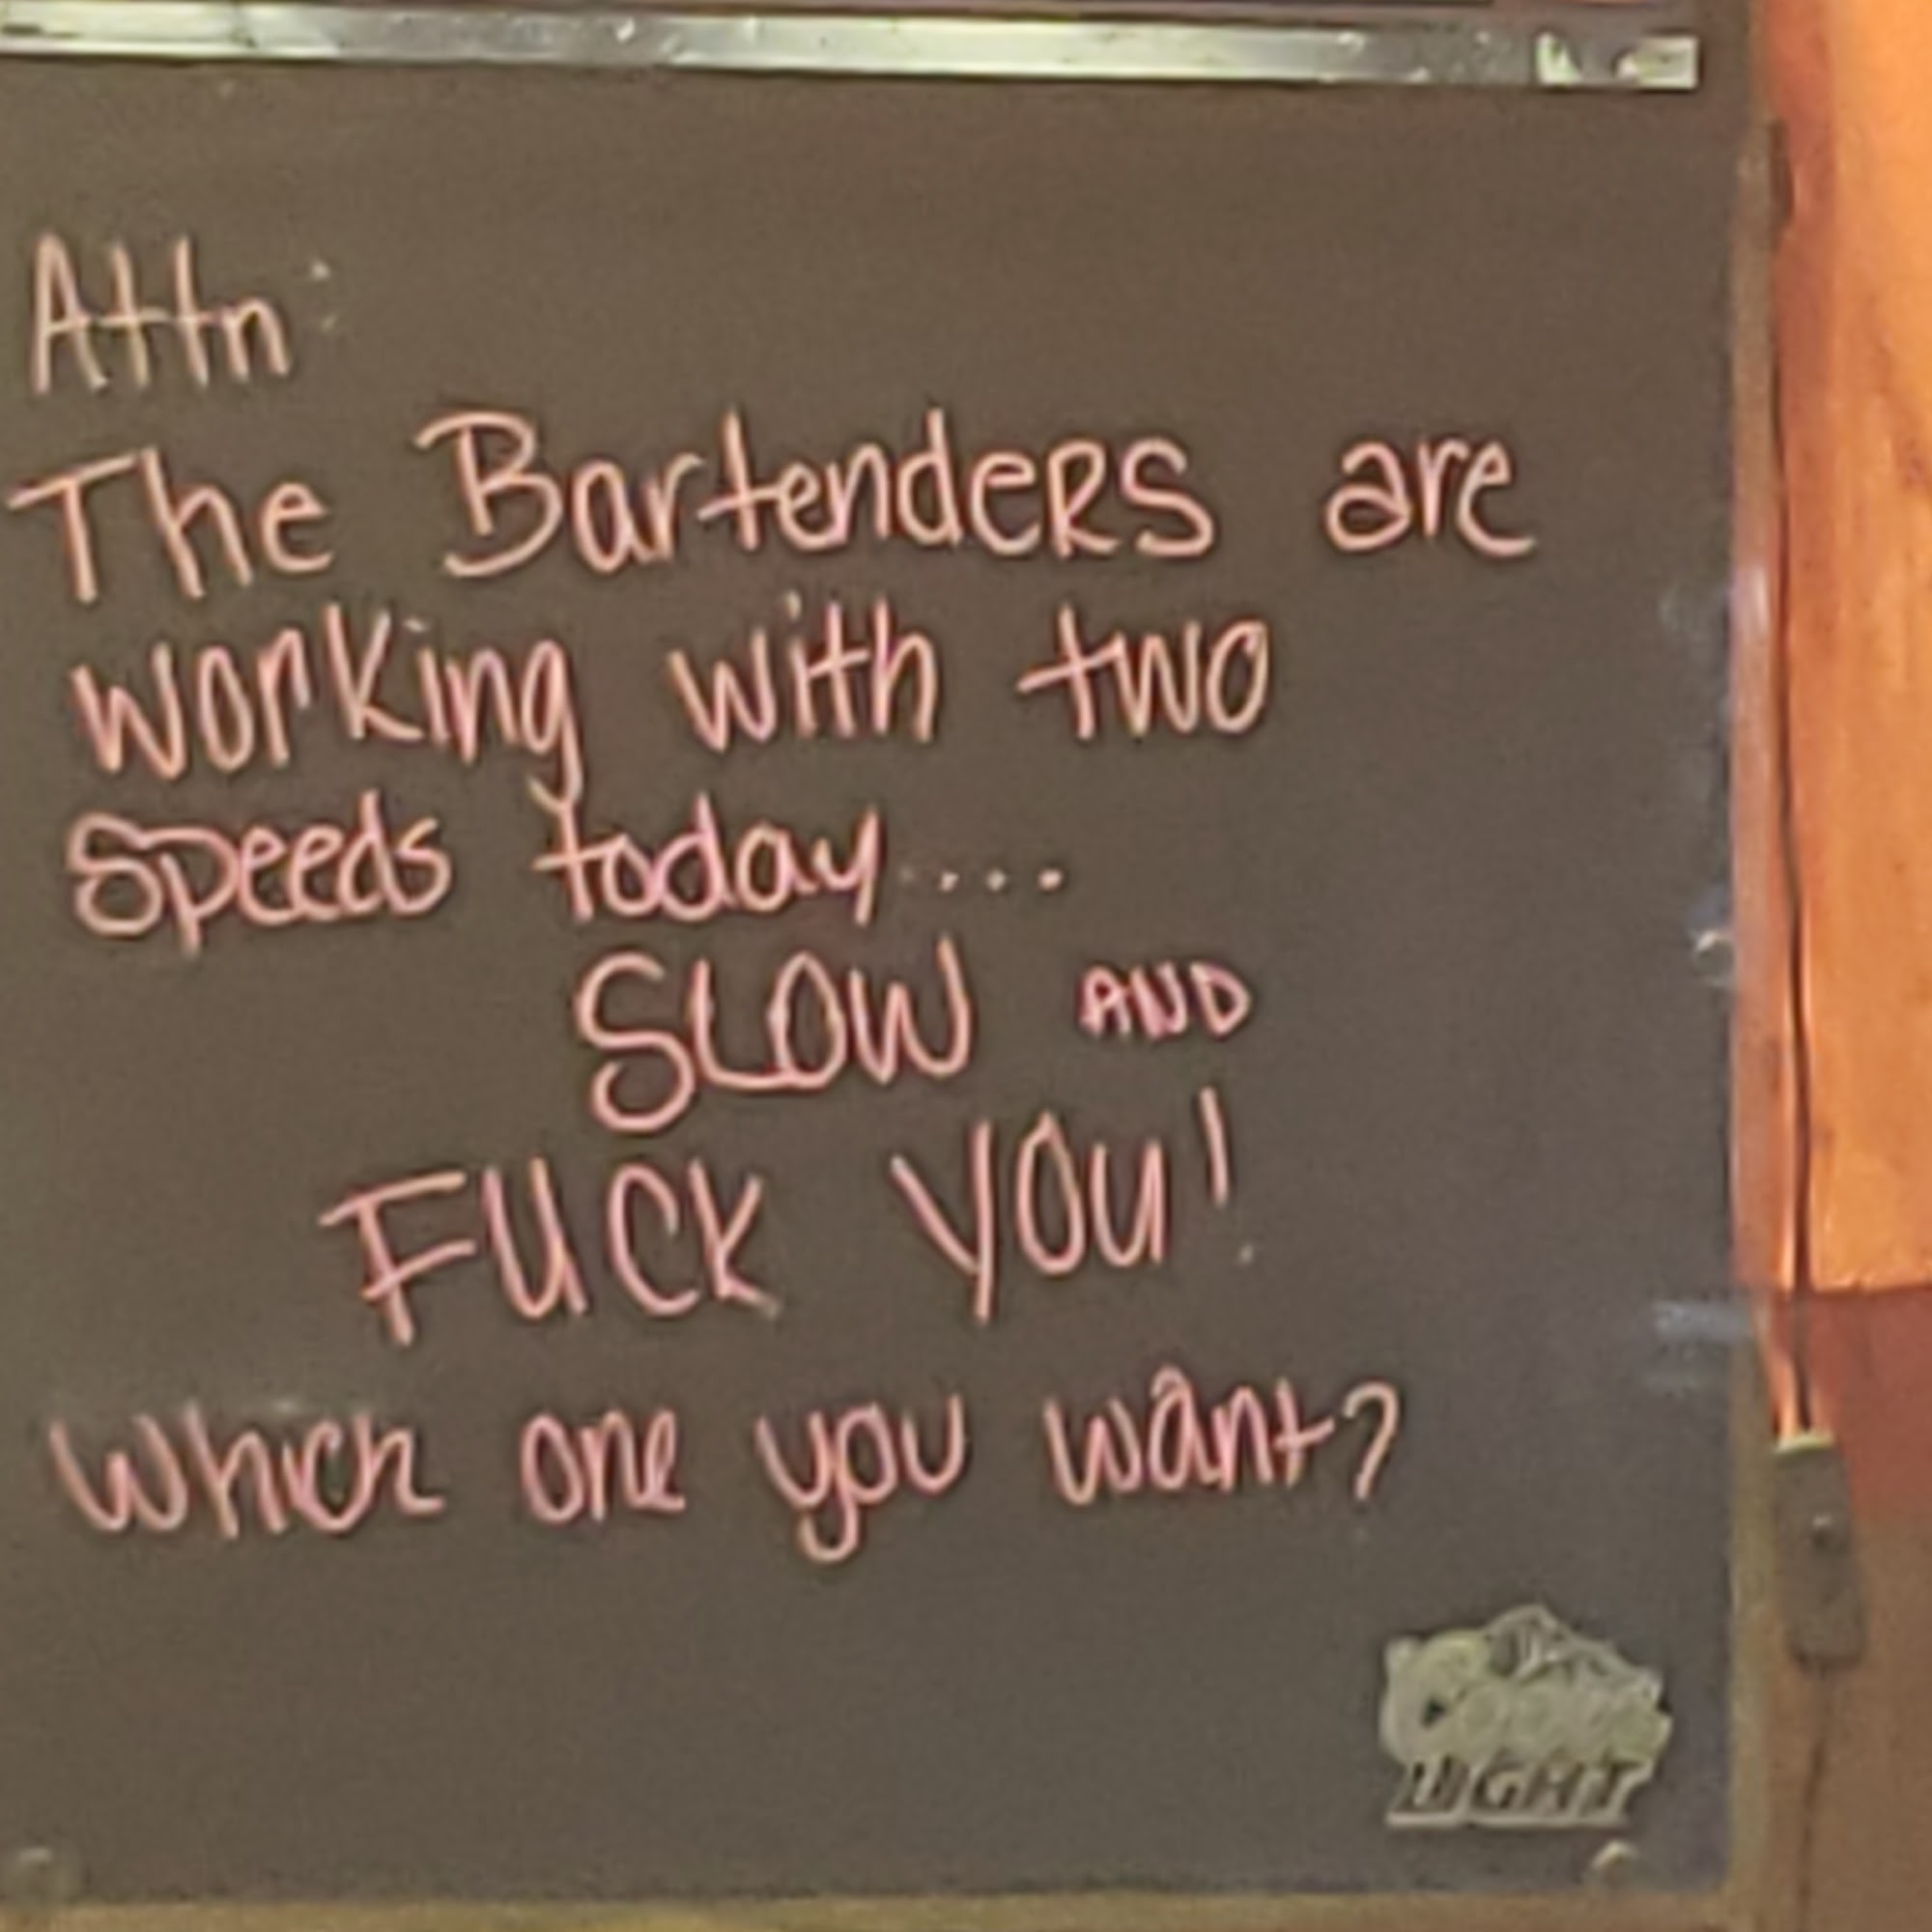 Attn:
The Bartenders are
working with two
speeds today....
SLOW AND
FUCK YOU!
Which one you want?
Coors
LIGHT